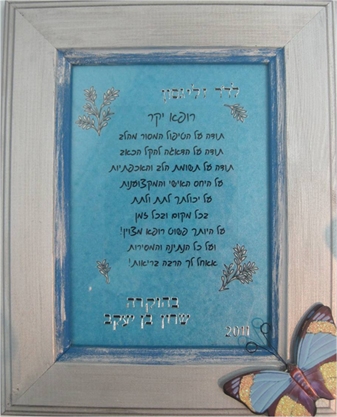 לדר וליגמן
רופא יקר
תודה על הטיפול המסור מהלב
תודה על הדאגה להקל הכאב
תודה על תשומת הלב והאכפתיות
על היחס האישי והמקצוענות
על יכולתך לתת ולתת
בכל מקום ובכל זמן
על היותך פשוט רופא מצוין!
ועל כל הנתינה והמסירות
אאחל לך הרבה בריאות!
בהוקרה
שרון בן יעקב
2011